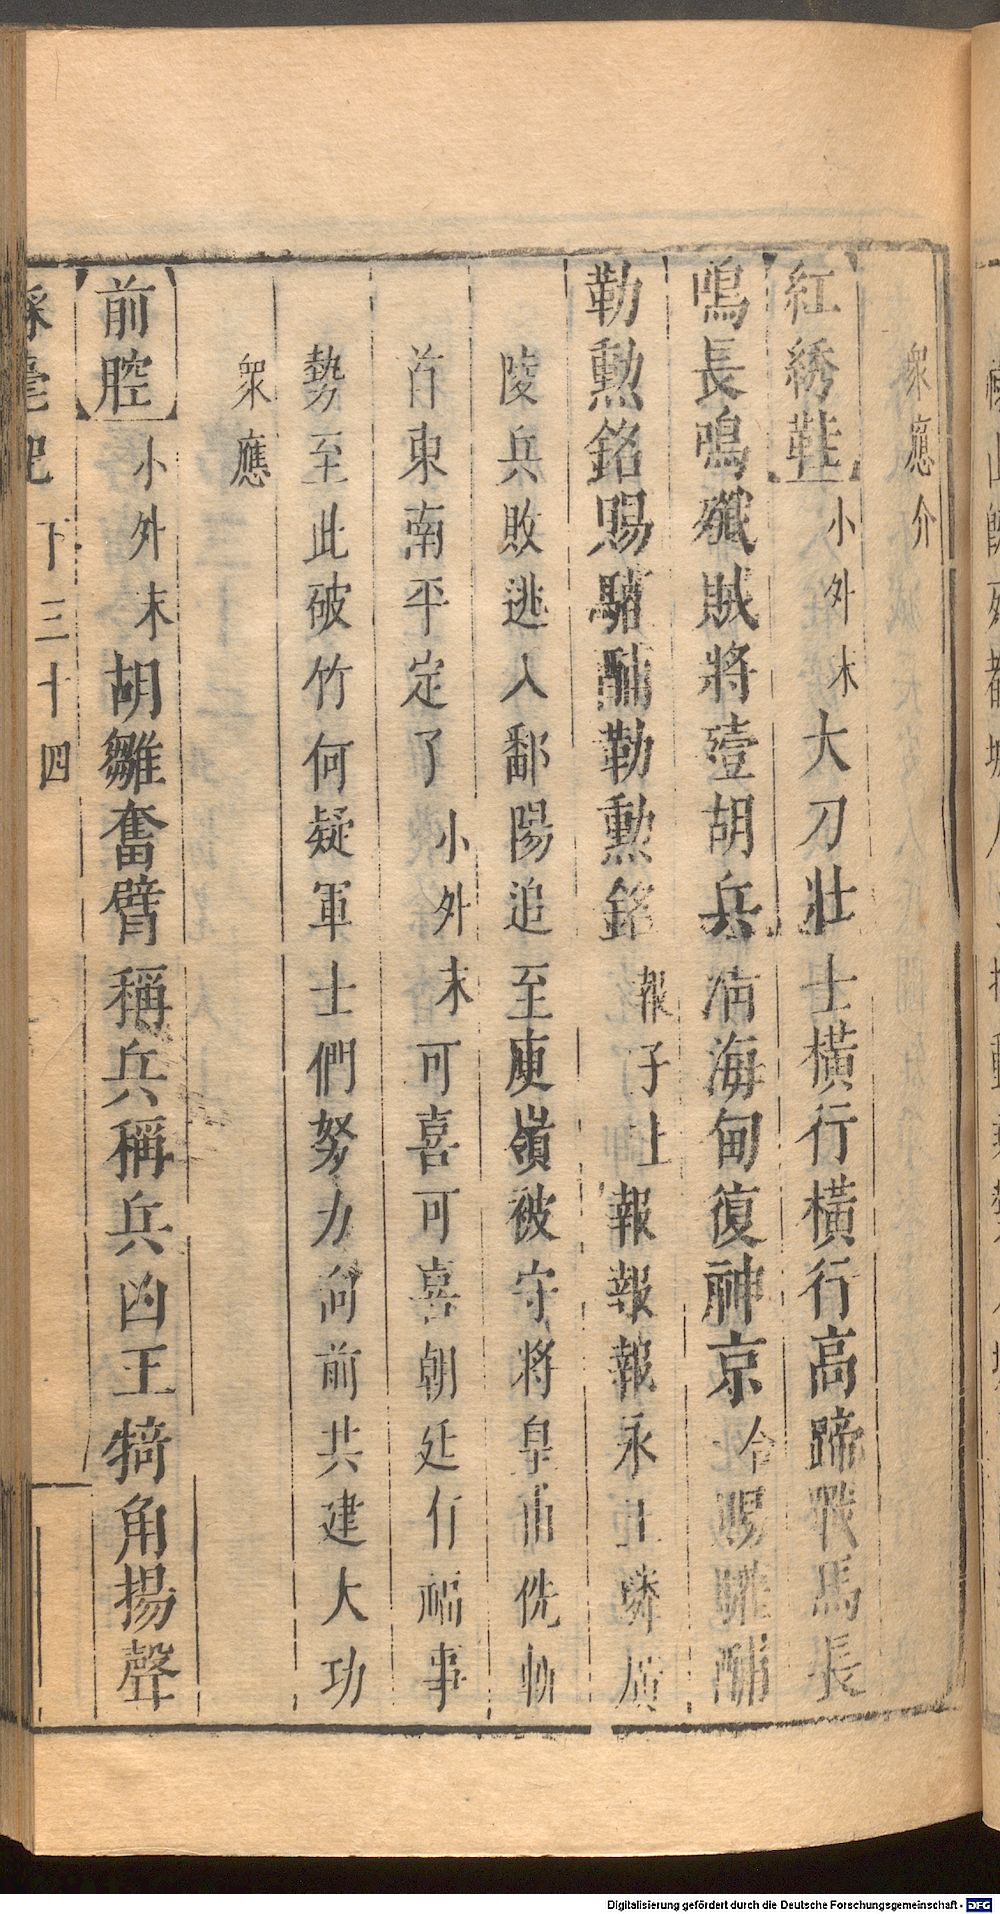 衆應介
【紅綉鞋】小外末大刀壯士橫行橫行高蹄戰馬長
鳴長鳴殲賊將殪胡兵清海甸復神京今賜驩酺
勒勲銘賜驩酺勒勲銘報子上報報報永王璘廣
陵兵敗逃入鄱陽追至庾嶺被守將皇甫侁執
首東南平定了小外末可喜可喜朝廷有福事
勢至此破竹何疑軍士們努力向前共建大功
衆應
【前腔】小外末胡雛奮臂稱兵稱兵凶王犄角揚聲
綵毫記 下 三十四
Digitalisierung gefördert durch die Deutsche Forschungsgemeinschaft - DFG